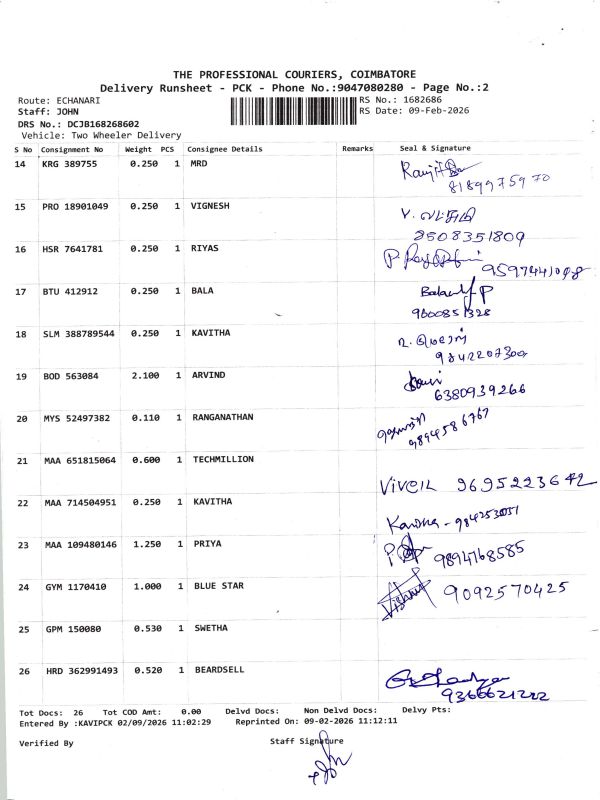 THE PROFESSIONAL COURIERS, COIMBATORE
Delivery Runsheet - PCK - Phone No.:9047080280 - Page No.:2
Route: ECHANARI RS No.: 1682686
Staff: JOHN RS Date: 09-Feb-2026
DRS No.: DCJB168268602
Vehicle: Two Wheeler Delivery
S No Consignment No Weight PCS Consignee Details Remarks Seal & Signature
14 KRG 389755 0.250 1 MRD
8189975970
15 PRO 18901049 0.250 1 VIGNESH V. லட்சுமி
2508351809
16 HSR 7641781 0.250 1 RIYAS
9597441098
17 BTU 412912 0.250 1 BALA
9600851328
18 SLM 388789544 0.250 1 KAVITHA
9842207300
19 BOD 563084 2.100 1 ARVIND
6380939266
20 MYS 52497382 0.110 1 RANGANATHAN
9894586767
21 MAA 651815064 0.600 1 TECHMILLION
9695223642
22 MAA 714504951 0.250 1 KAVITHA
Kavitha -
23 MAA 109480146 1.250 1 PRIYA
9894768585
24 GYM 1170410 1.000 1 BLUE STAR
9092570425
25 GPM 150080 0.530 1 SWETHA
26 HRD 362991493 0.520 1 BEARDSELL
9366621222
Tot Docs: 26 Tot COD Amt: 0.00 Delvd Docs: Non Delvd Docs: Delvy Pts:
Entered By :KAVIPCK 02/09/2026 11:02:29 Reprinted On: 09-02-2026 11:12:11
Verified By Staff Signature